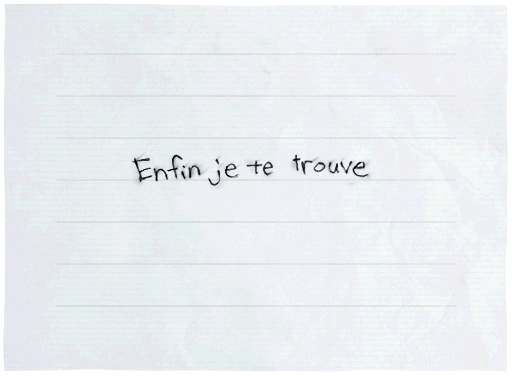 Enfin je te trouve